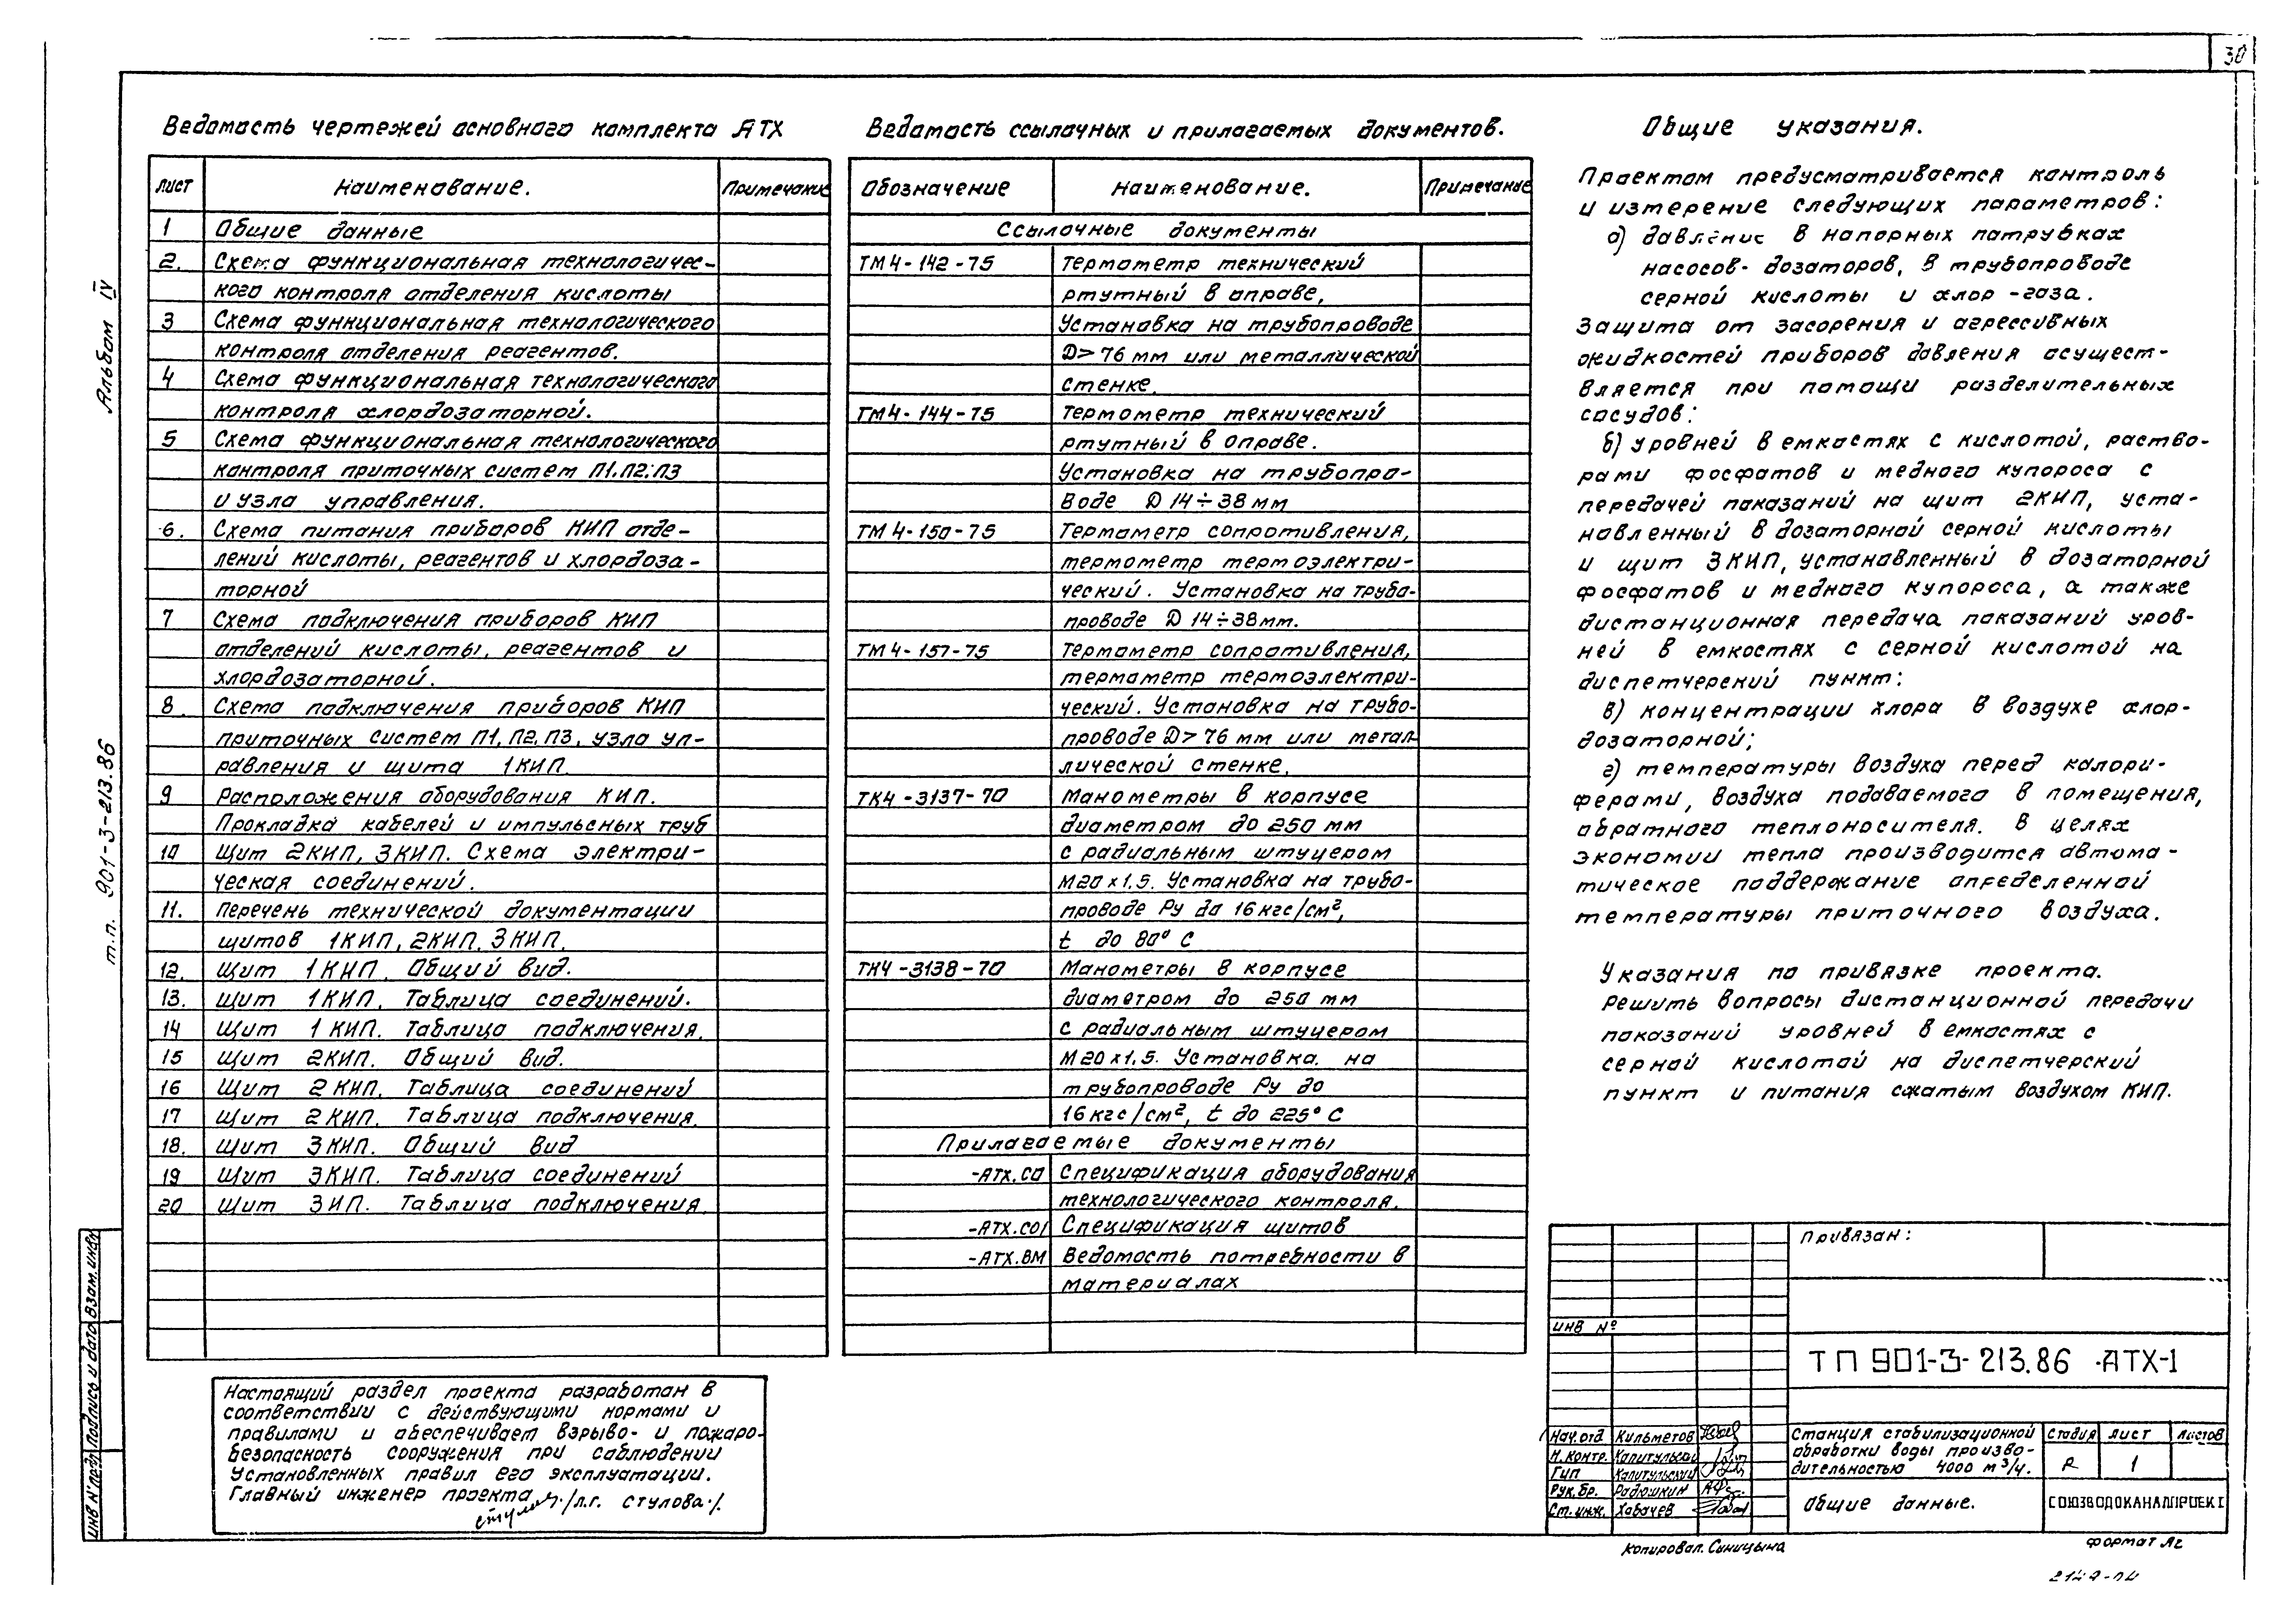 30
Ведомость чертежей основного комплекта АТХ
Лист Наименование. Примечание
1 Общие данные
2. Схема функциональная технологичес-
кого контроля отделения кислоты
3 Схема функциональная технологического
контроля отделения реагентов.
4 Схема функциональная технологического
контроля хлордозаторной.
5 Схема функциональная технологического
контроля приточных систем П1, П2, П3
и узла управления.
6. Схема питания приборов КИП отде-
лений кислоты, реагентов и хлордоза-
торной
7 Схема подключения приборов КИП
отделений кислоты, реагентов и
хлордозаторной.
8 Схема подключения приборов КИП
приточных систем П1, П2, П3, узла уп-
равления и щита 1КИП.
9 Расположения оборудования КИП.
Прокладка кабелей и импульсных труб
10 Щит 2КИП, 3КИП. Схема электри-
ческая соединений.
11. Перечень технической документации
щитов 1КИП, 2КИП, 3КИП.
12. Щит 1КИП. Общий вид.
13. Щит 1КИП. Таблица соединений.
14 Щит 1КИП. Таблица подключения.
15 Щит 2КИП. Общий вид.
16 Щит 2КИП. Таблица соединений
17 Щит 2КИП. Таблица подключения.
18. Щит 3КИП. Общий вид
19 Щит 3КИП. Таблица соединений
20 Щит 3ИП. Таблица подключения.
Настоящий раздел проекта разработан в
соответствии с действующими нормами и
правилами и обеспечивает взрыво- и пожаро-
безопасность сооружения при соблюдении
установленных правил его эксплуатации.
Главный инженер проекта /Л.Г. Стулова./
Ведомость ссылочных и прилагаемых документов.
Обозначение Наименование. Примечание
Ссылочные документы
ТМ4-142-75 Термометр технический
ртутный в оправе,
Установка на трубопроводе
D>76 мм или металлической
стенке.
ТМ4-144-75 Термометр технический
ртутный в оправе.
Установка на трубопро-
воде D 14÷38 мм
ТМ4-150-75 Термометр сопротивления,
термометр термоэлектри-
ческий. Установка на трубо-
проводе D 14÷38мм.
ТМ4-157-75 Термометр сопротивления,
термометр термоэлектри-
ческий. Установка на трубо-
проводе D>76 мм или метал-
лической стенке.
ТК4-3137-70 Манометры в корпусе
диаметром до 250 мм
с радиальным штуцером
М20х1,5. Установка на трубо-
проводе Ру до 16 кгс/см²,
t до 80° С
ТК4-3138-70 Манометры в корпусе
диаметром до 250 мм
с радиальным штуцером
М20х1,5. Установка на
трубопроводе Ру до
16 кгс/см², t до 225° С
Прилагаемые документы
-АТХ.СО Спецификация оборудования
технологического контроля.
-АТХ.СО1 Спецификация щитов
-АТХ.ВМ Ведомость потребности в
материалах
Общие указания.
Проектом предусматривается контроль
и измерение следующих параметров:
а) давление в напорных патрубках
насосов-дозаторов, в трубопроводе
серной кислоты и хлор-газа.
Защита от засорения и агрессивных
жидкостей приборов давления осущест-
вляется при помощи разделительных
сосудов:
б) уровней в емкостях с кислотой, раство-
рами фосфатов и медного купороса с
передачей показаний на щит 2КИП, уста-
навленный в дозаторной серной кислоты
и щит 3КИП, установленный в дозаторной
фосфатов и медного купороса, а также
дистанционная передача показаний уров-
ней в емкостях с серной кислотой на
диспетчерский пункт:
в) концентрации хлора в воздухе хлор-
дозаторной;
г) температуры воздуха перед калори-
ферами, воздуха подаваемого в помещения,
обратного теплоносителя. В целях
экономии тепла производится автома-
тическое поддержание определенной
температуры приточного воздуха.
Указания по привязке проекта.
Решить вопросы дистанционной передачи
показаний уровней в емкостях с
серной кислотой на диспетчерский
пункт и питания сжатым воздухом КИП.
Привязан:
ИНВ №
ТП 901-3-213.86 -АТХ-1
Нач.отд. Кильметов
Н.контр. Капитульский
ГИП Капитульский
Рук.бр. Радюшкин
Ст.инж. Хабачев
Станция стабилизационной
обработки воды произво-
дительностью 4000 м³/ч.
Стадия Лист Листов
Р 1
Общие данные.
СОЮЗВОДОКАНАЛПРОЕКТ
Копировал. Синицына
Формат А2
Альбом IV
т.п. 901-3-213.86
Взам.инв№
Подпись и дата
ИНВ №подл